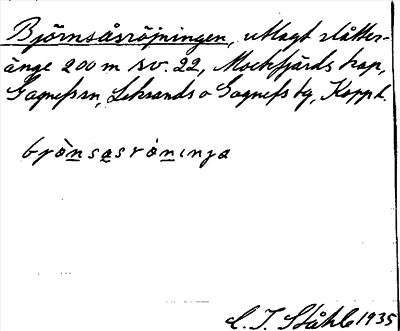 Björnsåsröjningen, utlagt slåtter-
änge 200 m sv. 22, Mockfjärds kap,
Gagnefs sn, Leksands o Gagnefs tg, Kopp l.
bjö̀nsasrö́ninga
C. I. Ståhle 1935